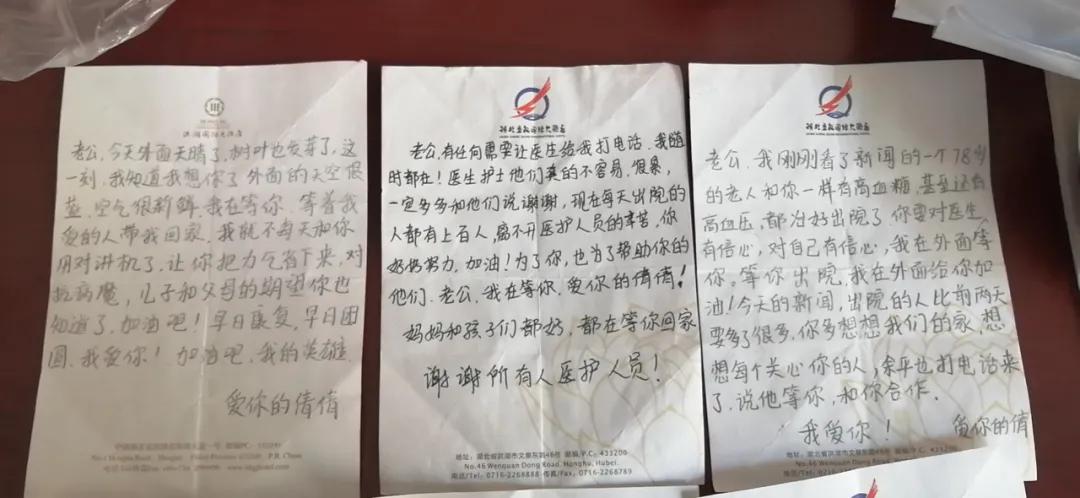 老公,今天外面天晴了,树叶也发芽了,这
一刻,我知道我想你了,外面的天空很
蓝,空气很新鲜,我在等你,等着我
爱的人带我回家,我就不每天和你
用对讲机了,让你把力气省下来,对
抗病魔,儿子和父母的期望你也
知道了,加油吧!早日康复,早日团
圆,我爱你!加油吧,我的英雄.
爱你的倩倩
国际大酒店
老公,有任何需要让医生给我打电话,我随
时都在!医生护士他们真的不容易,很累,
一定多多和他们说谢谢,现在每天出院的
人都有上百人,离不开医护人员的辛苦,你
好好努力,加油!为了你,也为了帮助你的
他们.老公,我在等你.爱你的倩倩!
妈妈和孩子们都好,都在等你回家
谢谢所有人医护人员!
地址:湖北省洪湖市文泉东路46号 邮编/P.C. 433200
No.46 Wenquan Dong Road, Honghu, Hubei.
电话/Tel, 0716-2268888 传真/Fax, 0716-2268789
国际大酒店
老公,我刚刚看了新闻的一个78岁
的老人和你一样有高血糖,甚至还有
高血压,都治好出院了,你要对医生
有信心,对自己有信心,我在外面等
你,等你出院,我在外面给你加
油!今天的新闻,出院的人比前两天
要多了很多,你多想想我们的家,想
想每个关心你的人,余平也打电话来
了,说他等你,和你合作.
我爱你!
爱你的倩
地址:湖北省洪湖市文泉东路46号 邮编/P.C. 433200
No.46 Wenquan Dong Road, Honghu, Hubei.
电话/Tel, 0716-2268888 传真/Fax, 0716-2268789